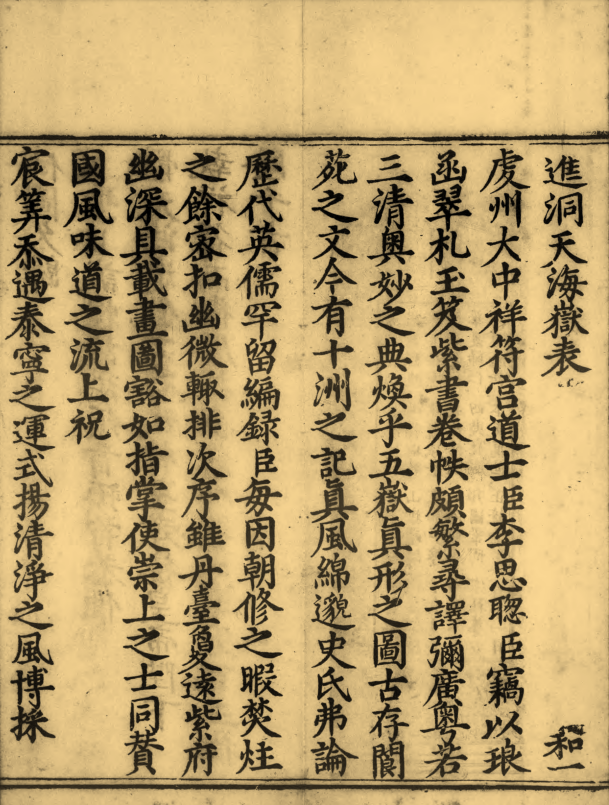 進洞天海嶽表
虔州大中祥符宫道士臣李思聦臣竊以琅
函翠札玉笈紫書卷帙頗繁尋譯彌廣粤若
三清奥妙之典煥乎五嶽眞形之圖古存閬
苑之文今有十洲之記眞風綿邈史氏弗論
歷代英儒罕留編録臣每因朝修之暇焚炷
之餘宻扣幽微輙排次序雖丹臺敻遠紫府
幽深具載畫圖豁如指掌使崇上之士同賛
國風味道之流上祝
宸筭忝遇泰寧之運式揚清淨之風博採
和一